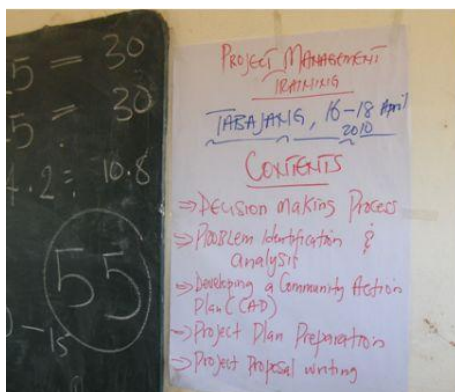 5 = 30
5 = 30
.2 = 10.8
55
- 15
PROJECT MANAGEMENT
TRAINING
TABAJANG, 16-18 April
2010
CONTENTS
⇒ DECISION MaKing PROCESS
⇒ PROBLEM Identification &
analysis
⇒ Developing a Community Action
Plan (CAD)
⇒ Project Plan Preparation
⇒ Project Proposal writing